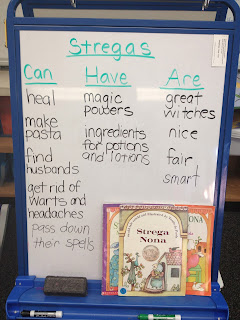 Stregas
Can
heal
make
pasta
find
husbands
get rid of
warts and
headaches
pass down
their spells
Have
magic
powers
ingredients
for potions
and lotions
Are
great
witches
nice
fair
smart
NONA
Strega
Nona